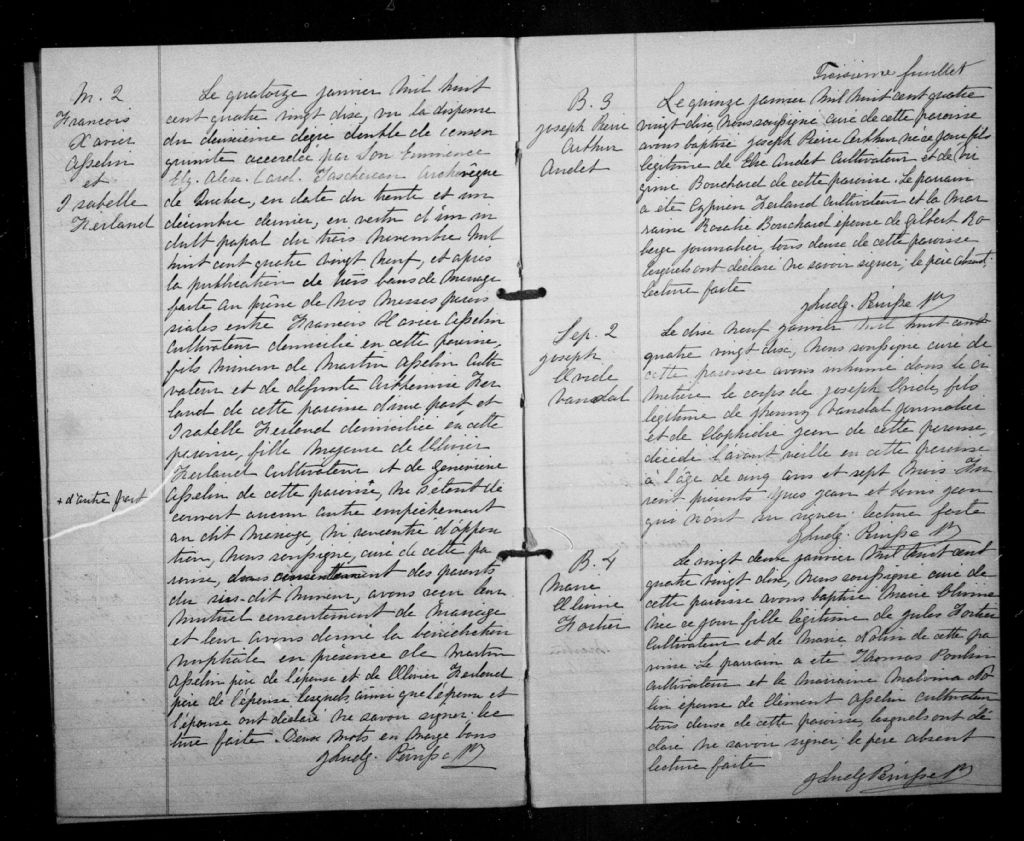 M. 2
Francois
Xavier
Asselin
et
Isabelle
Ferland
Le quatorze janvier mil huit
cent quatre vingt dix, vu la dispense
du deuxieme degre double de consan
guinite accordée par Son Eminence
Elz. Alex. Card. Taschereau Archevêque
de Quebec, en date du trente et un
décembre dernier, en vertu d'un in
dult papal du trois Novembre mil
huit cent quatre vingt neuf, et après
la publication de trois bans de mariage
faite au prône de nos messes parois
siales entre Francois Xavier Asselin
cultivateur domicilié en cette paroisse,
fils mineur de Martin Asselin culti
vateur et de défunte Arthemise Fer
land de cette paroisse d'une part, et
Isabelle Ferland domiciliée en cette
paroisse, fille majeure de Olivier
Ferland cultivateur et de Genevieve
Asselin de cette paroisse, ne s'étant dé
+ d'autre part
couvert aucun autre empechement
au dit mariage, ni rencontre d'oppo
tion, nous soussigné, curé de cette pa
roisse, du consentement des parents
du sus-dit mineur, avons reçu leur
mutuel consentement de mariage
et leur avons donné la bénédiction
nuptiale en présence de Martin
Asselin père de l'époux et de Olivier Ferland
père de l'épouse lesquels, ainsi que l'époux et
l'épouse ont déclaré ne savoir signer. lec
ture faite. Deux mots en marge bons
J Ludg.
Troisieme feuillet
B. 3
joseph Pierre
Arthur
Audet
Le quinze janvier mil huit cent quatre
vingt dix, Nous soussigné curé de cette paroisse
avons baptisé joseph Pierre Arthur né ce jour fils
légitime de Audet Cultivateur et de
Bouchard de cette paroisse. Le parrain
a été Cyprien Ferland cultivateur et la Mar
raine Rosalie Bouchard épouse de Gilbert Ro
berge journalier, tous deux de cette paroisse
lesquels ont déclaré ne savoir signer; le père absent;
lecture faite
J Ludg.
Sep. 2
joseph
Vandal
Le dix neuf janvier mil huit cent
quatre vingt dix, Nous soussigné curé de
cette paroisse avons inhumé dans le ci
metière le corps de joseph fils
légitime de Vandal journalier
et de jean de cette paroisse,
décédé l'avant veille en cette paroisse
à l'âge de cinq ans et sept mois Fu
rent présents Yves jean et
qui n'ont su signer. lecture faite
J Ludg.
B. 4
Marie
Fortier
Le vingt deux janvier mil huit cent
quatre vingt dix, Nous soussigné curé de
cette paroisse avons baptisé Marie
née ce jour fille légitime de jules Fortier
Cultivateur et de Marie de cette pa
roisse. Le parrain a été Thomas Poulin
cultivateur et la marraine Malvina
épouse de Clément Asselin cultivateur
tous deux de cette paroisse, lesquels ont dé
claré ne savoir signer; le père absent
lecture faite
J Ludg